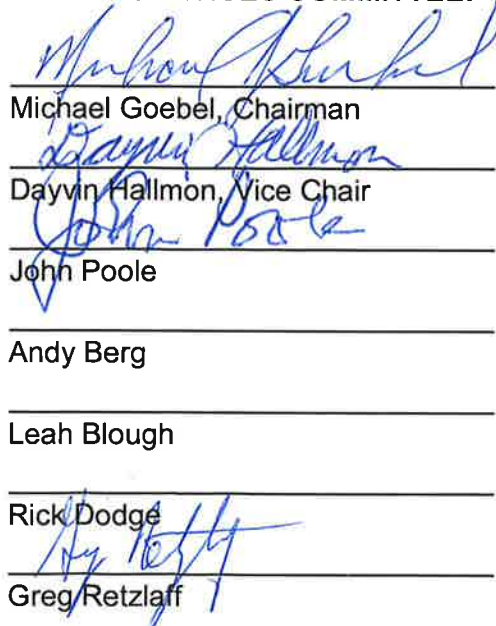 COMMITTEE:
Michael Goebel
Michael Goebel, Chairman
Dayvin Hallmon
Dayvin Hallmon, Vice Chair
John Poole
John Poole
Andy Berg
Leah Blough
Rick Dodge
Greg Retzlaff